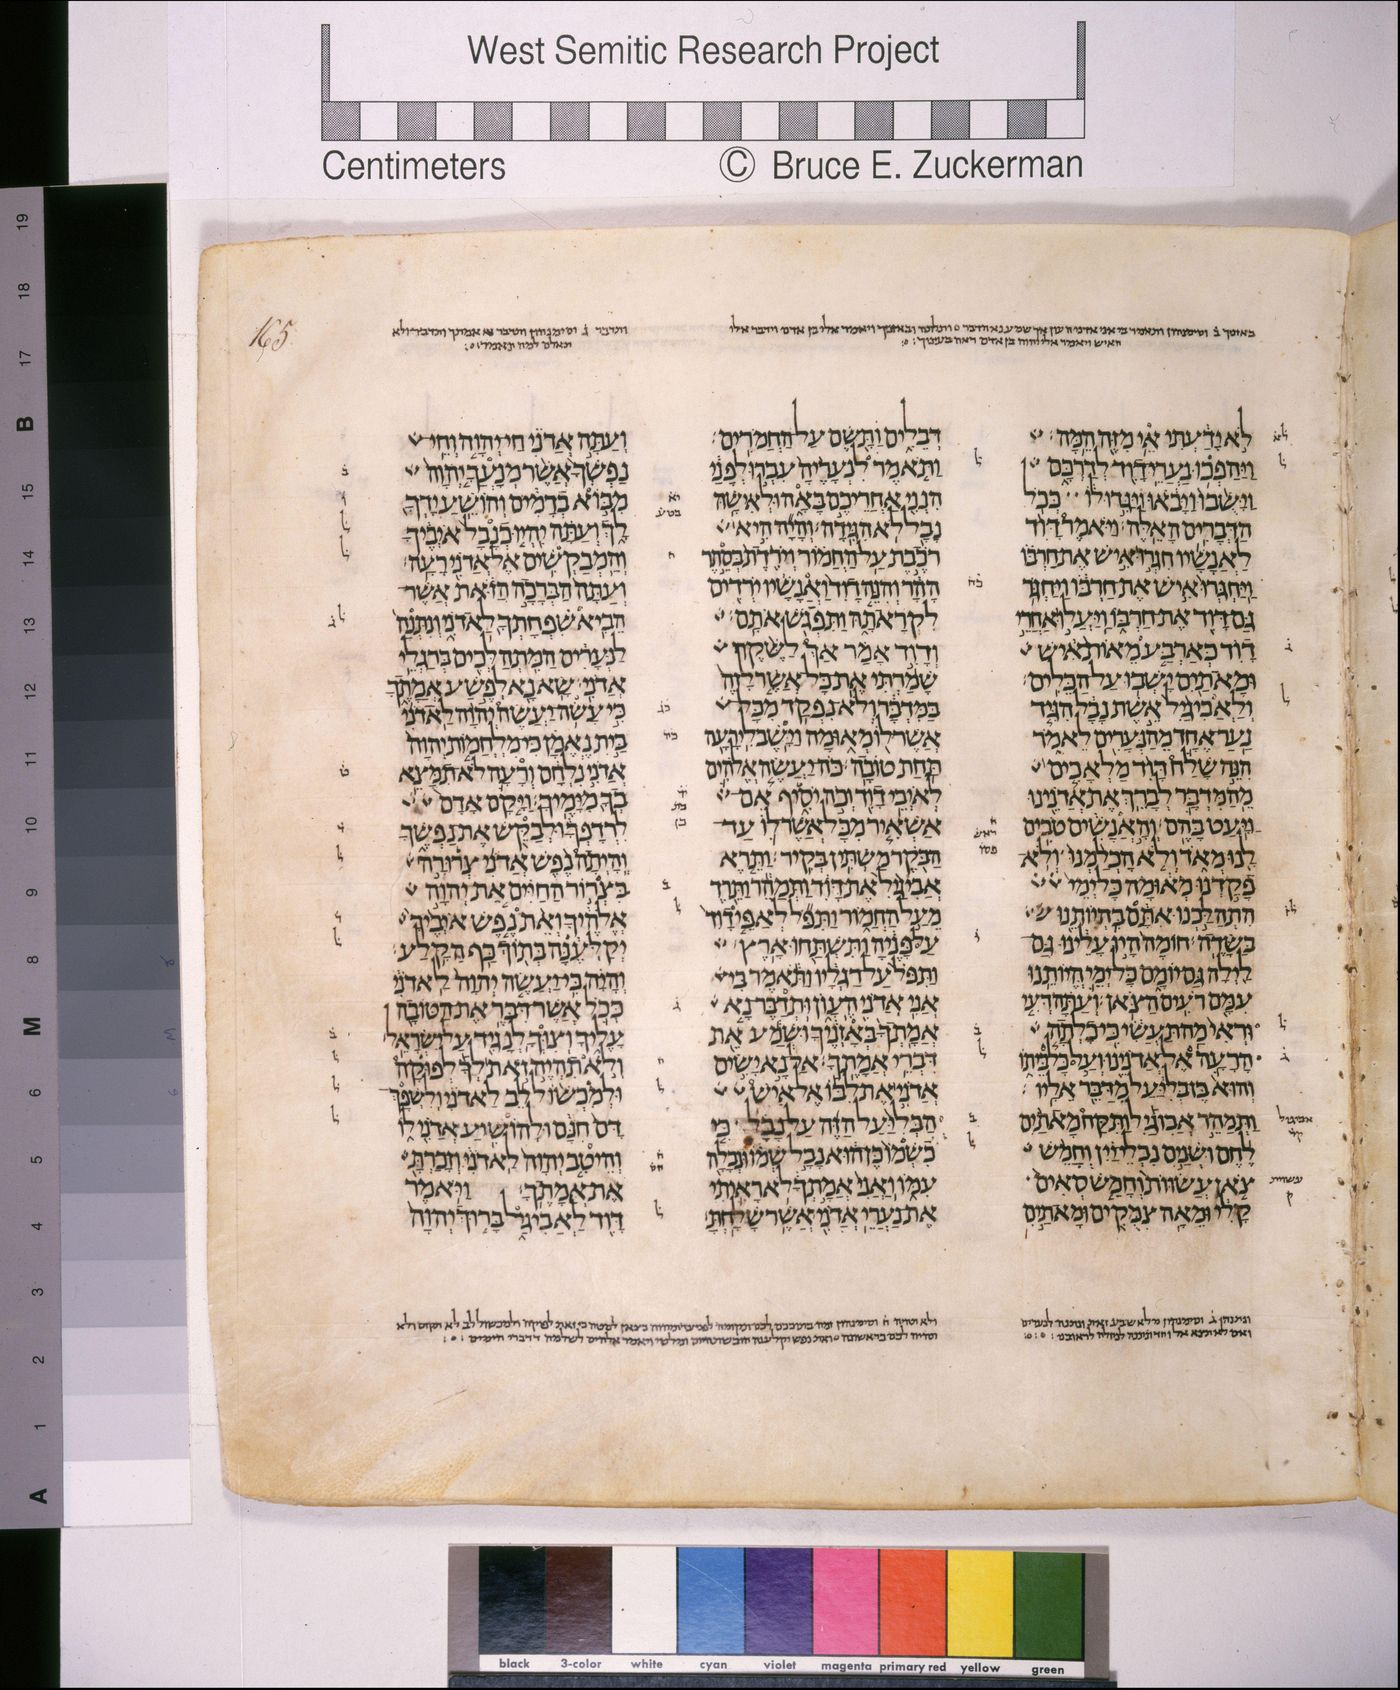 West Semitic Research Project
Centimeters © Bruce E. Zuckerman
165
לא ידעתי אי מזה המה׃
ויהפכו נערי דוד לדרכם
וישבו ויבאו ויגדו לו ככל
הדברים האלה׃ ויאמר דוד
לאנשיו חגרו איש את חרבו
ויחגרו איש את חרבו ויחגר
גם דוד את חרבו ויעלו אחרי
דוד כארבע מאות איש
ומאתים ישבו על הכלים׃
ולאביגיל אשת נבל הגיד
נער אחד מהנערים לאמר
הנה שלח דוד מלאכים
מהמדבר לברך את אדנינו
ויעט בהם׃ והאנשים טבים
לנו מאד ולא הכלמנו ולא
פקדנו מאומה כל ימי
התהלכנו אתם בהיותנו
בשדה׃ חומה היו עלינו גם
לילה גם יומם כל ימי היותנו
עמם רעים הצאן׃ ועתה דעי
וראי מה תעשי כי כלתה
הרעה אל אדנינו ועל כל ביתו
והוא בן בליעל מדבר אליו׃
ותמהר אבוגיל ותקח מאתים
לחם ושנים נבלי יין וחמש
צאן עשוות וחמש סאים
קלי ומאה צמקים ומאתים
דבלים ותשם על החמרים׃
ותאמר לנעריה עברו לפני
הנני אחריכם באה ולאישה
נבל לא הגידה׃ והיה היא
רכבת על החמור וירדת בסתר
ההר והנה דוד ואנשיו ירדים
לקראתה ותפגש אתם׃
ודוד אמר אך לשקר
שמרתי את כל אשר לזה
במדבר ולא נפקד מכל
אשר לו מאומה וישב לי רעה
תחת טובה׃ כה יעשה אלהים
לאיבי דוד וכה יסיף אם
אשאיר מכל אשר לו עד
הבקר משתין בקיר׃ ותרא
אביגיל את דוד ותמהר ותרד
מעל החמור ותפל לאפי דוד
על פניה ותשתחו ארץ׃
ותפל על רגליו ותאמר בי
אני אדני העון ותדבר נא
אמתך באזניך ושמע את
דברי אמתך׃ אל נא ישים
אדני את לבו אל איש
הבליעל הזה על נבל כי
כשמו כן הוא נבל שמו ונבלה
עמו ואני אמתך לא ראיתי
את נערי אדני אשר שלחת׃
ועתה אדני חי יהוה וחי
נפשך אשר מנעך יהוה
מבוא בדמים והושע ידך
לך ועתה יהיו כנבל איביך
והמבקשים אל אדני רעה׃
ועתה הברכה הזאת אשר
הביא שפחתך לאדני ונתנה
לנערים המתהלכים ברגלי
אדני׃ שא נא לפשע אמתך
כי עשה יעשה יהוה לאדני
בית נאמן כי מלחמות יהוה
אדני נלחם ורעה לא תמצא
בך מימיך׃ ויקם אדם
לרדפך ולבקש את נפשך
והיתה נפש אדני צרורה
בצרור החיים את יהוה
אלהיך ואת נפש איביך
יקלענה בתוך כף הקלע׃
והיה כי יעשה יהוה לאדני
ככל אשר דבר את הטובה
עליך וצוך לנגיד על ישראל׃
ולא תהיה זאת לך לפוקה
ולמכשול לב לאדני ולשפך
דם חנם ולהושיע אדני לו
והיטב יהוה לאדני וזכרת
את אמתך׃ ויאמר
דוד לאביגל ברוך יהוה
19
18
17
B
15
14
13
12
11
10
9
8
M
6
5
4
3
2
1
A
black 3-color white cyan violet magenta primary red yellow green